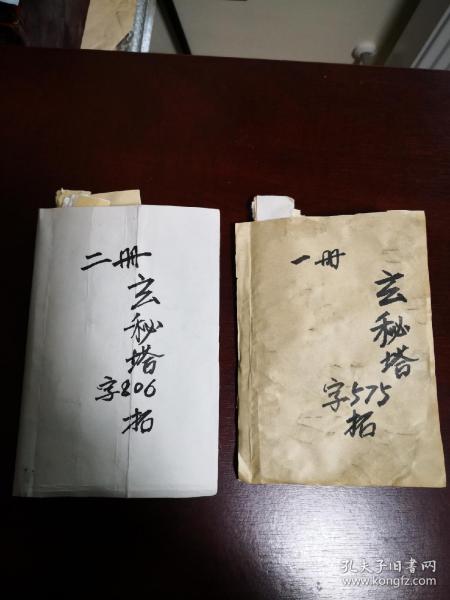 二册
玄秘塔
字206
拓
一册
玄秘塔
字575
拓
孔夫子旧书网
www.kongfz.com